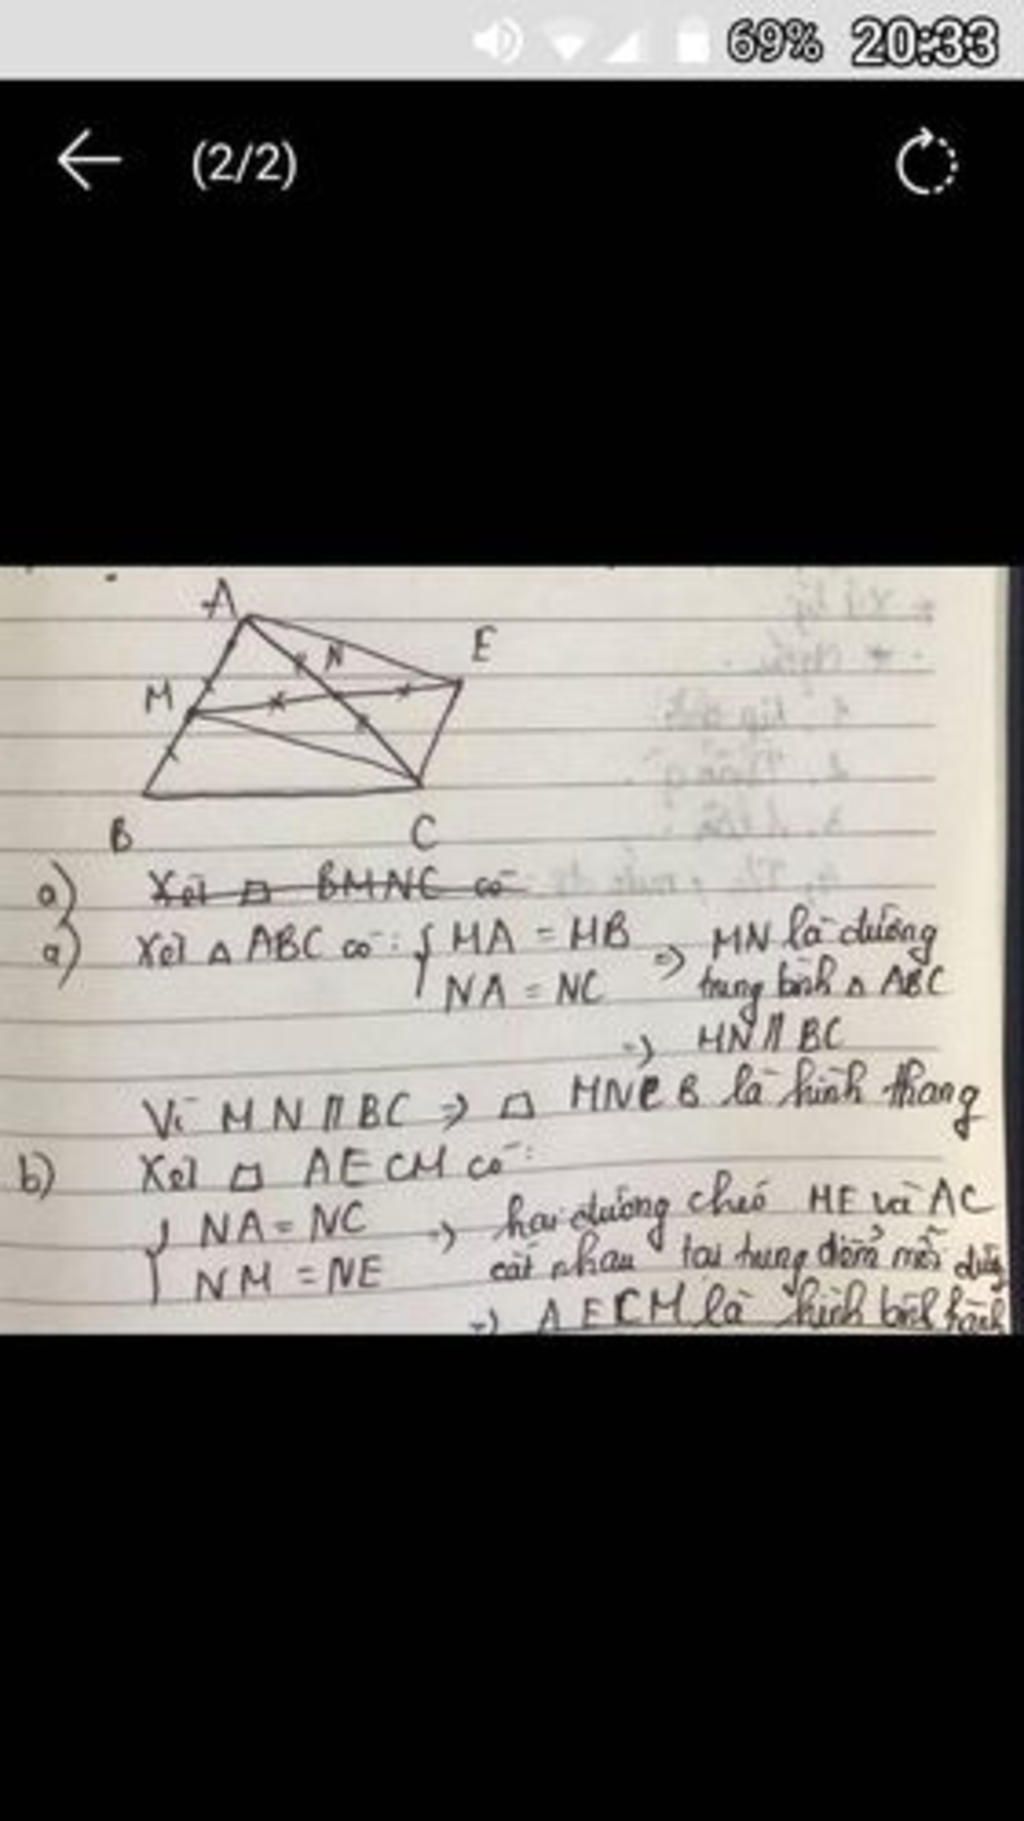 69% 20:33
(2/2)
A
E
N
M
B
C
a) Xét BMNC có
a) Xét Δ ABC có: { MA = MB => MN là đường
NA = NC trung bình Δ ABC
=> MN // BC
Vì MN // BC => MNCB là hình thang
b) Xét AECM có:
{ NA = NC => hai đường chéo ME và AC
NM = NE cắt nhau tại trung điểm mỗi đường
=> AECM là hình bình hành